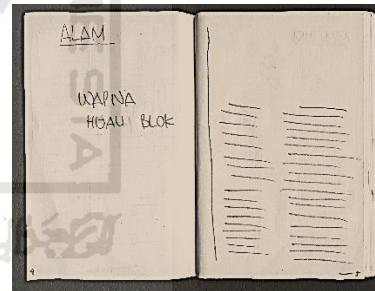 ALAM
WARNA
HIJAU BLOK
4
5